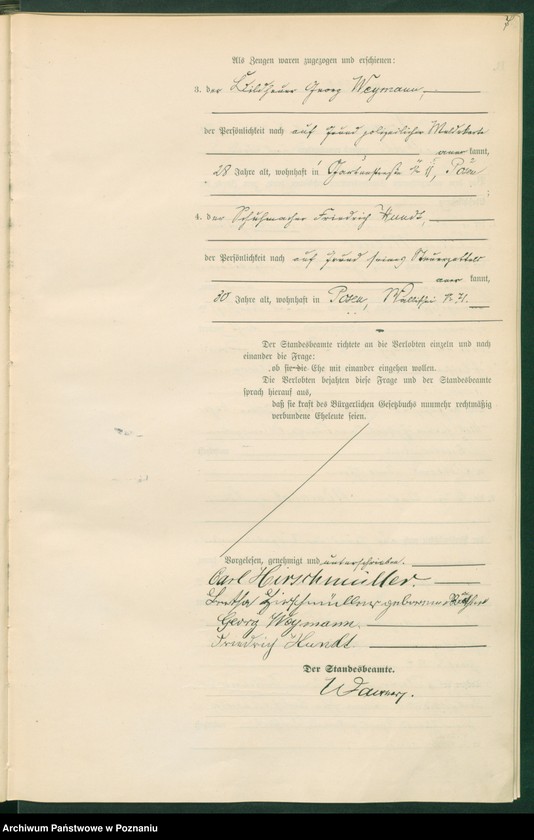 7
Als Zeugen waren zugezogen und erschienen:
3. der Bildhauer Georg Weymann,
der Persönlichkeit nach auf Grund polizeilicher Meldekarte
anerkannt,
28 Jahre alt, wohnhaft in Gartenstraße № 11, Posen
;
4. der Schuhmacher Friedrich Hundt,
der Persönlichkeit nach auf Grund seines Steuerzettels
anerkannt,
30 Jahre alt, wohnhaft in Posen, Wallischei № 71.
Der Standesbeamte richtete an die Verlobten einzeln und nach
einander die Frage:
ob sie die Ehe mit einander eingehen wollen.
Die Verlobten bejahten diese Frage und der Standesbeamte
sprach hierauf aus,
daß sie kraft des Bürgerlichen Gesetzbuchs nunmehr rechtmäßig
verbundene Eheleute seien.
Vorgelesen, genehmigt und unterschrieben.
Carl Hirschmüller.
Hirschmüller geborene
Georg Weymann.
Friedrich Hundt.
Der Standesbeamte.
Archiwum Państwowe w Poznaniu